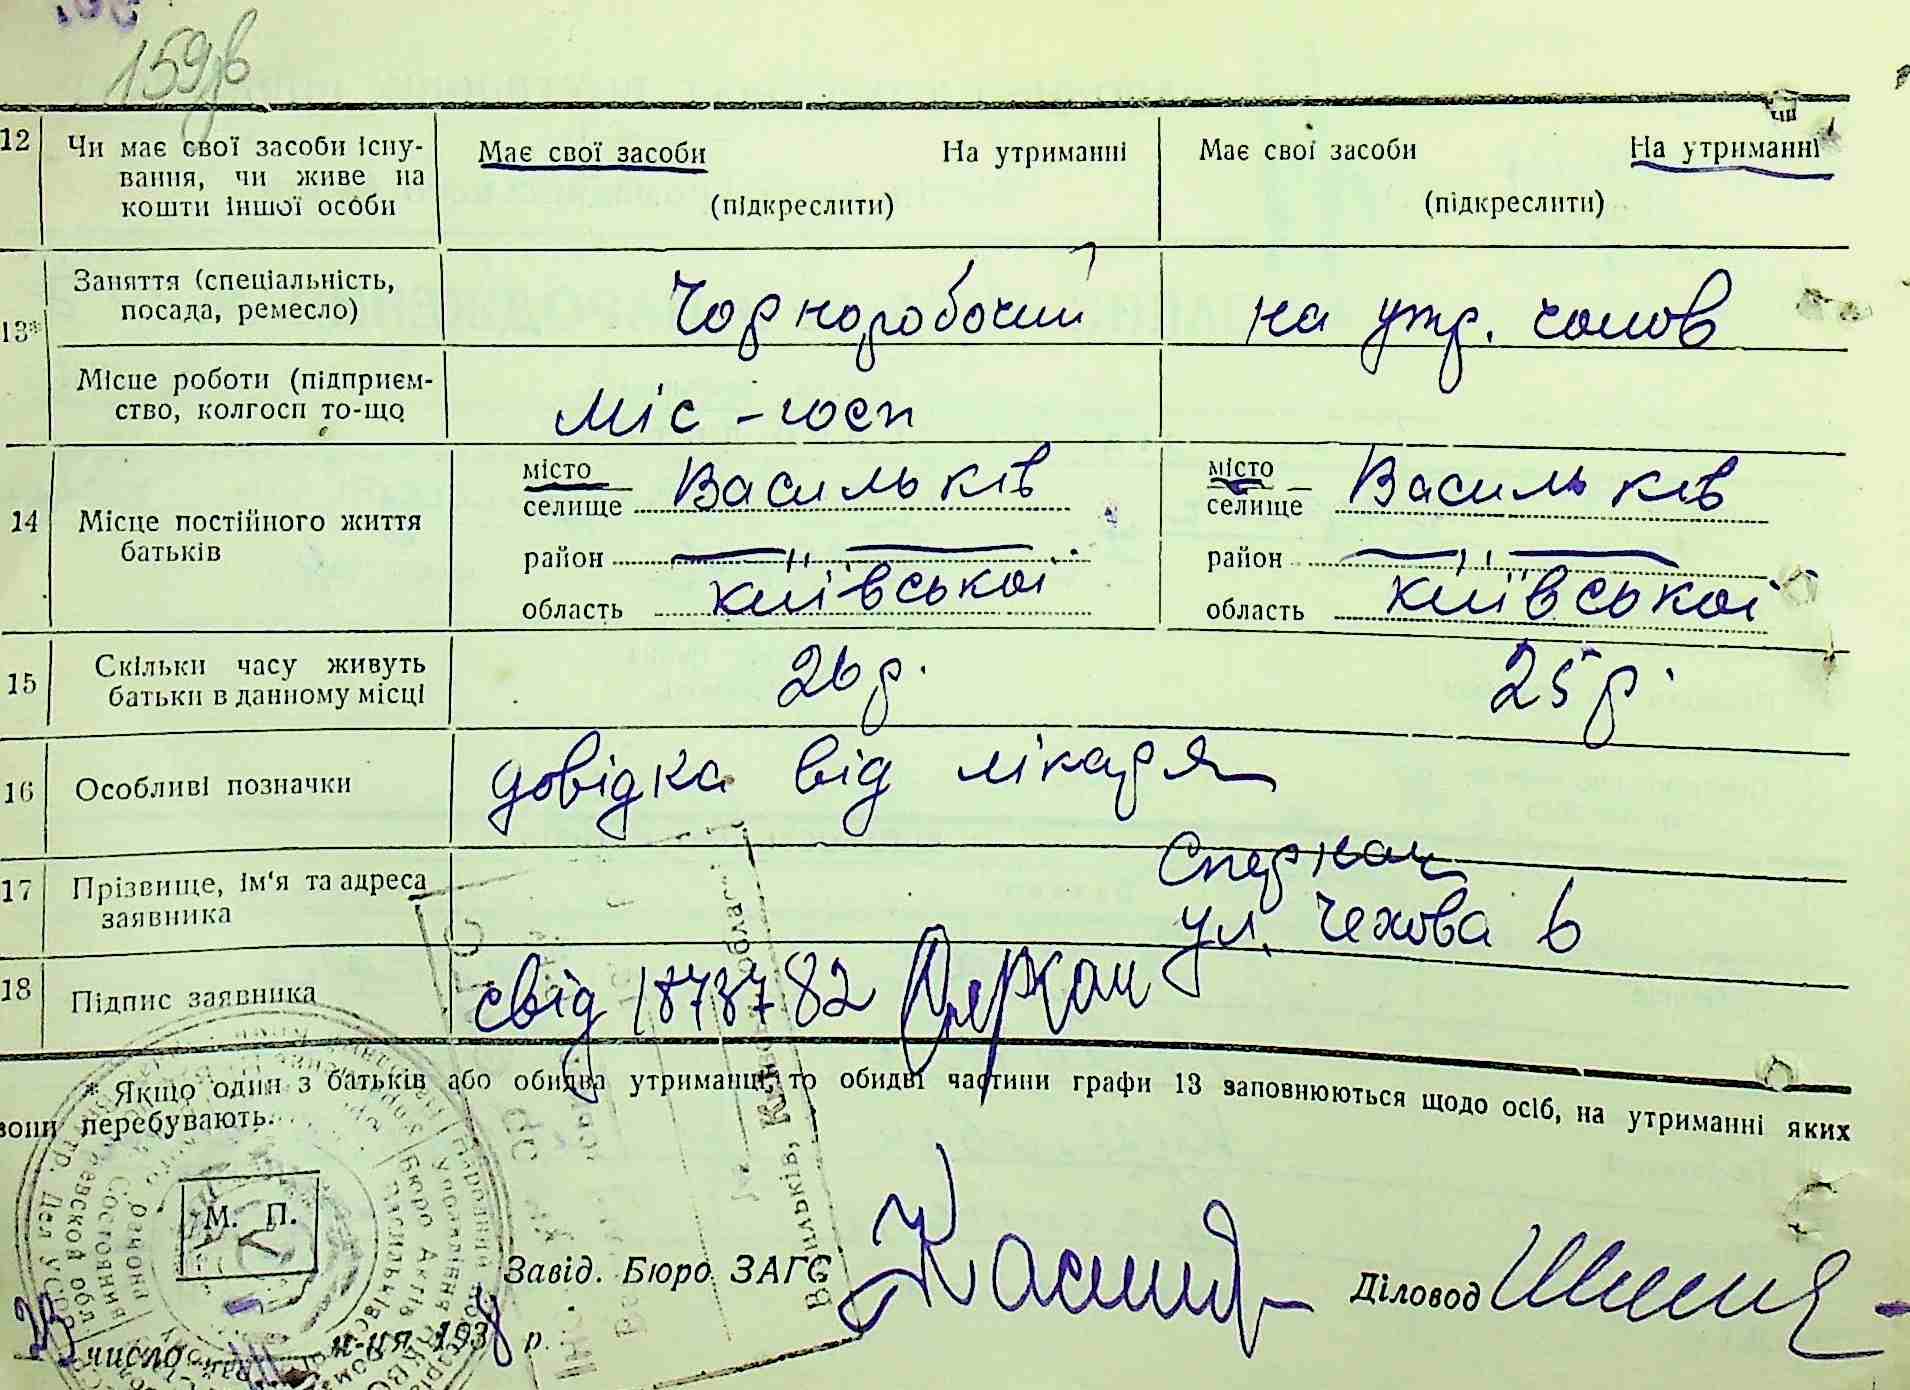 159зв
12 Чи має свої засоби існу- Має свої засоби На утриманні Має свої засоби На утриманні
вання, чи живе на
кошти іншої особи (підкреслити) (підкреслити)
Заняття (спеціальність,
посада, ремесло) Чорноробочий на утр. чолов
13*
Місце роботи (підприєм-
ство, колгосп то-що міс - госп
місто Васильків місто Васильків
14 Місце постійного життя селище селище
батьків район — " — район — " —
область київської область київської
15 Скільки часу живуть 26 р. 25 р.
батьки в данному місці
16 Особливі позначки довідка від лікаря
17 Прізвище, ім'я та адреса
заявника ул. Чехова 6
18 Підпис заявника свід 1878782
* Якщо один з батьків або обидва утриманці, то обидві частини графи 13 заповнюються щодо осіб, на утриманні яких
вони перебувають.
М. П.
Завід. Бюро ЗАГС Діловод
число м-ця 1938 р.